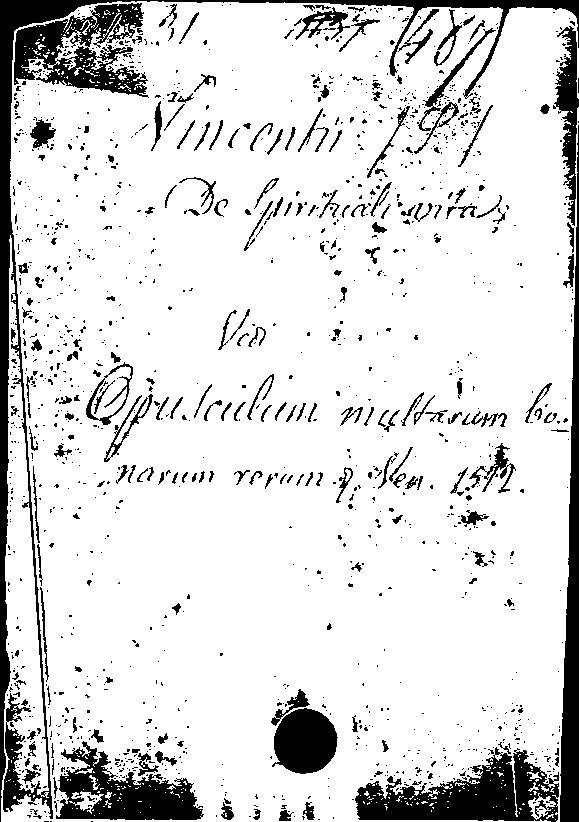 31. (487)
Vincentii /S/
De Spirituali vita
Vedi . . . .
Opusculum multarum bo-
narum rerum &. Ven. 1512.